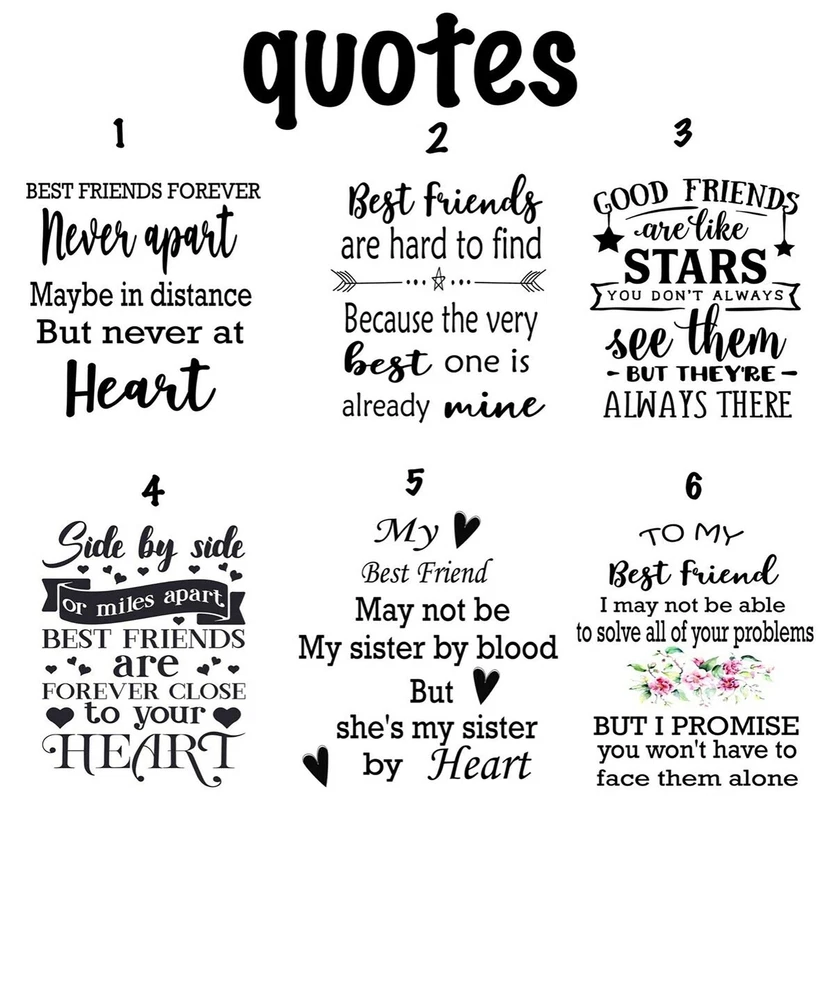 quotes
1
BEST FRIENDS FOREVER
Never apart
Maybe in distance
But never at
Heart
2
Best friends
are hard to find
Because the very
best one is
already mine
3
GOOD FRIENDS
are like
STARS
YOU DON'T ALWAYS
see them
- BUT THEY'RE -
ALWAYS THERE
4
Side by side
or miles apart
BEST FRIENDS
are
FOREVER CLOSE
to your
HEART
5
My
Best Friend
May not be
My sister by blood
But
she's my sister
by Heart
6
TO MY
Best Friend
I may not be able
to solve all of your problems
BUT I PROMISE
you won't have to
face them alone